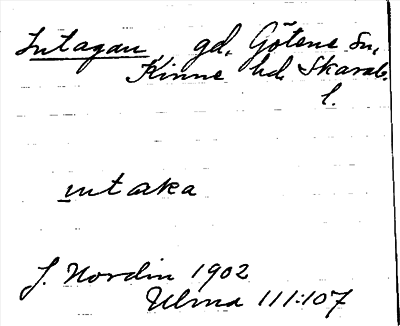 Intagan, gd, Götene sn,
Kinne hd. Skarab.
l.
ıntaka
J. Nordin 1902
Ulma 111:107